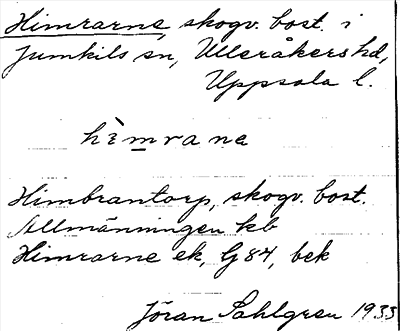 Himrarne, skogv. bost. i
Jumkils sn, Ulleråkers hd,
Uppsala l.
hìmrane
Himbrantorp, skogv. bost.
Allmänningen kb
Himrarne ek, G84, bek
Jöran Sahlgren 1933